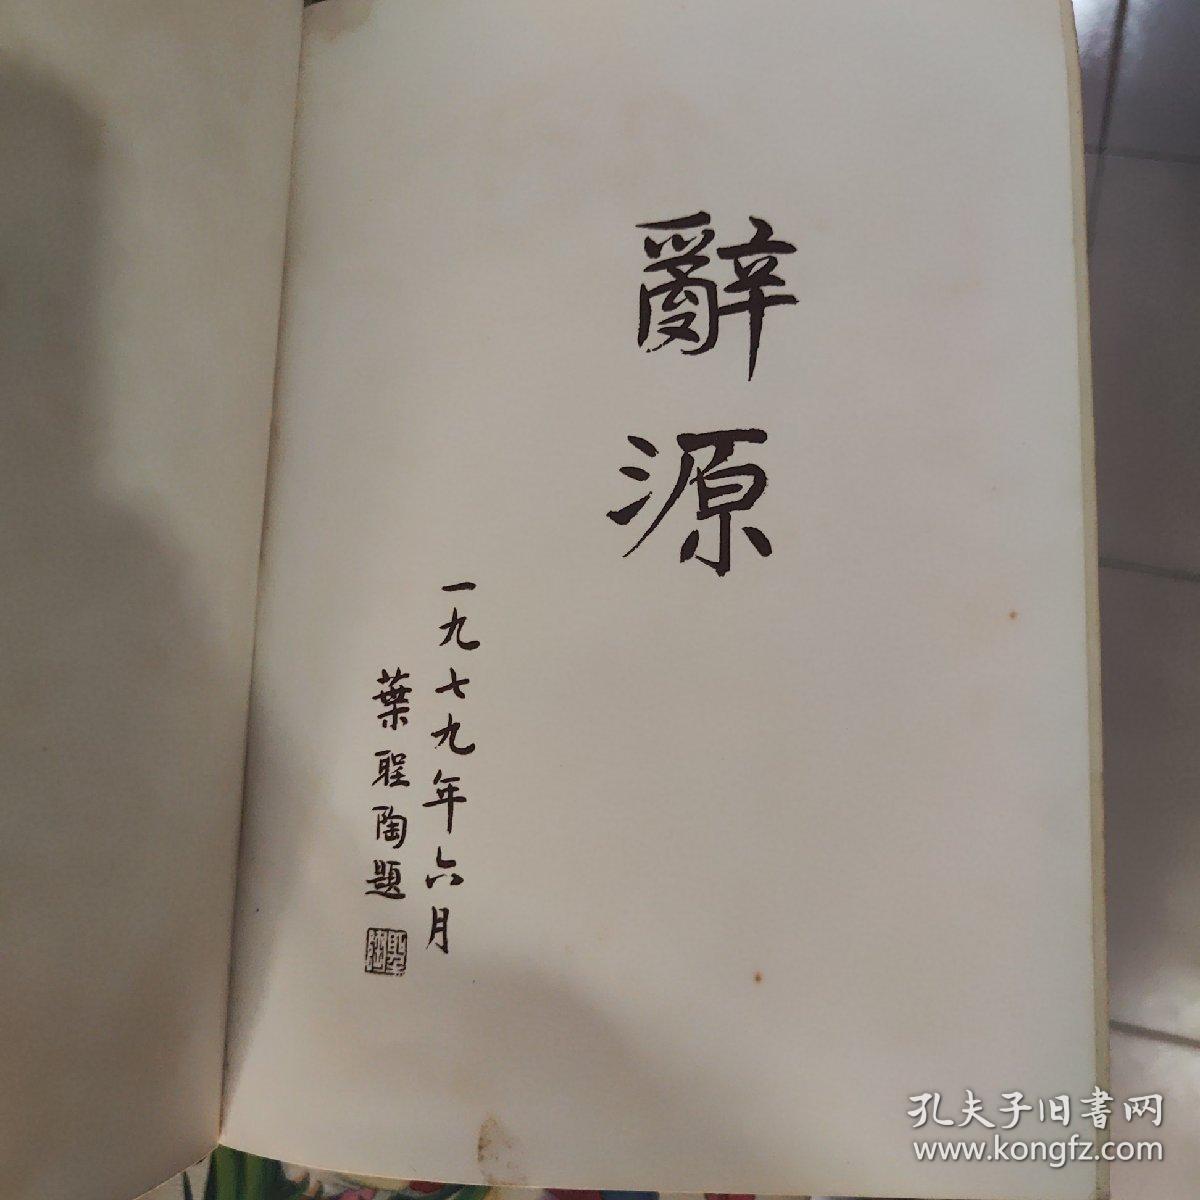 辭源
一九七九年六月
葉聖陶題
聖陶
孔夫子旧書网
www.kongfz.com